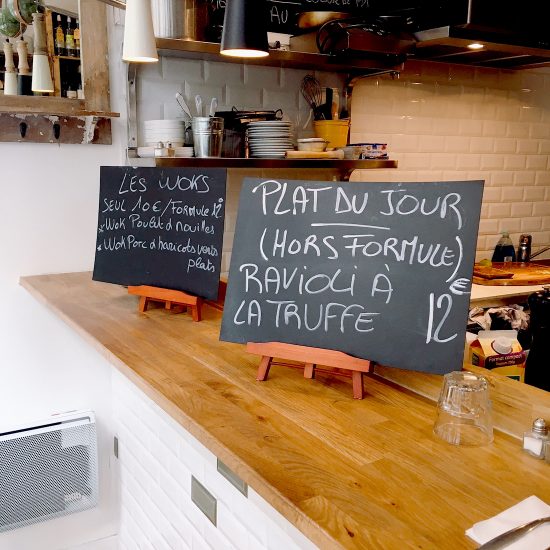 LES WOKS
SEUL 10€/FORMULE 12
* WOK POULET D NOUILLES
* WOK PORC D HARICOTS VERTS
PLATS
PLAT DU JOUR
(HORS FORMULE)
RAVIOLI À
LA TRUFFE 12€
AU
Format compact